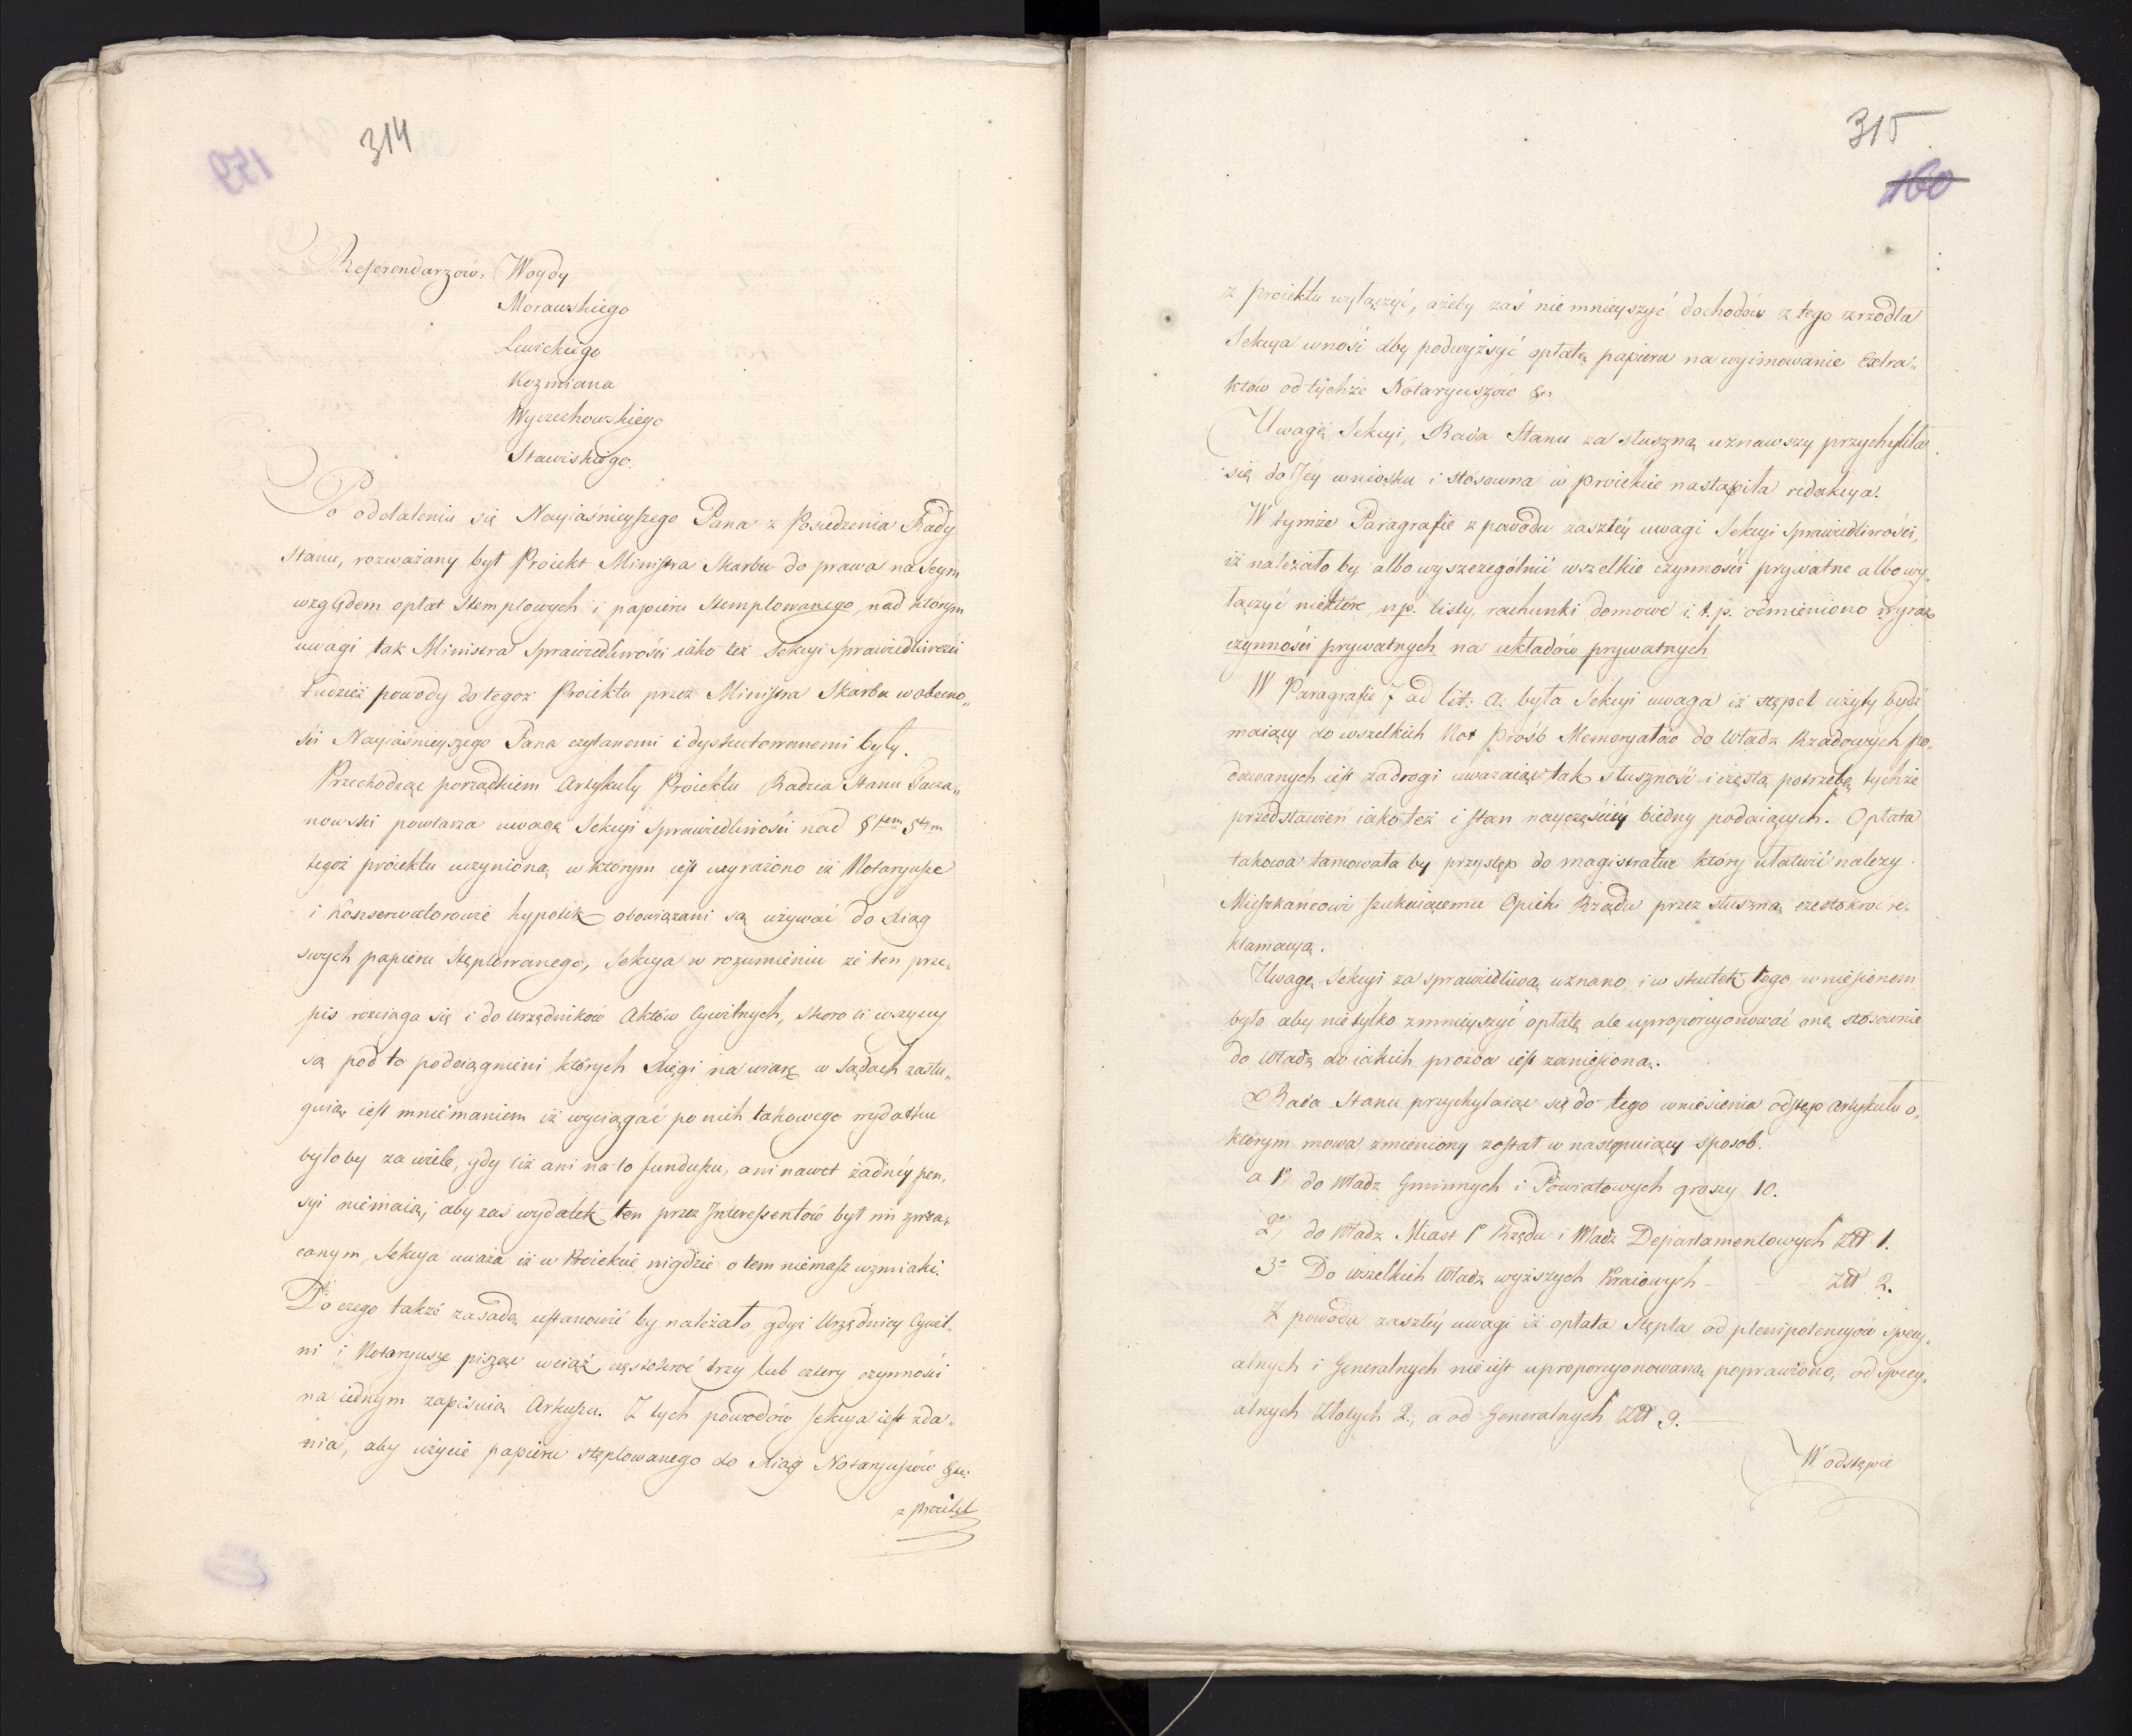 314
159
Referendarzów: Woydy
Morawskiego
Lewickiego
Kozmiana
Wyczechowskiego
Stawiskiego.
Po oddaleniu się Nayiaśnieyszego Pana z Posiedzenia Rady
Stanu, rozważany był Proiekt Ministra Skarbu do prawa na Seym
względem opłat Stemplowych i papieru Stemplowanego, nad którym
uwagi tak Ministra Sprawiedliwości iáko też Sekcyi Sprawiedliwości
tudzież powody do tegoż Proiektu przez Ministra Skarbu w obecno„
ści Nayiaśnieyszego Pana czytanemi i dyskutowanemi były.
Przechodząc porządkiem Artykuły Proiektu Radzca Stanu
nowski powtarza uwagę Sekcyi Sprawiedliwości nad
tegoż proiektu uczynioną, w którym iest wyrażono iż Notaryusze
i Konserwatorowie hypotek obowiązani są używać do Xiąg
swych papieru Stęplowanego, Sekcya w rozumieniu że ten prze„
pis rozciąga się i do Urzędników Aktów Cywilnych, skoro ci wszyscy
są pod to podciągnieni których Xięgi na wiarę w Sądach zasłu„
guią, iest mniemaniem iż wyciągać po nich takowego wydatku
byłoby za wiele, gdyż ani na to funduszu, ani nawet żadnéy pen„
syi niemaią, aby zaś wydatek ten przez Interessentów był im zwra„
canym, Sekcya uważa iż w Proiekcie nigdzie o tem niemasz wzmianki.
Do czego także zasadę ustanowić by należało gdyż Urzędnicy Cywil„
ni i Notaryusze pisząc wciąż częstokroć trzy lub cztery czynności
na iednym zapisuią Arkuszu. Z tych powodów Sekcya iest zda„
nia, aby użycie papieru stęplowanego do Xiąg Notaryuszów &c:
z Proiekt
315
160
z proiektu wyłączyć, ażeby zaś nie mnieyszyć dochodów z tego zrzodła
Sekcya wnosi aby podwyższyć opłatę papieru na wyimowanie Extra„
któw od tychże Notaryuszów &c:
Uwagę Sekcyi, Rada Stanu za słuszną uznawszy przychyliła
się do Jéy wniosku i stósowna w proiekcie nastąpiła redakcya.
W tymże Paragrafie z powodu zaszłéy uwagi Sekcyi Sprawiedliwości,
iż należało by albo wyszczególnić wszelkie czynności prywatne albo wy„
łączyć niektóre, np. listy, rachunki domowe i. t. p. odmieniono wyraz
czynności prywatnych na układów prywatnych
W Paragrafie 7 ad lit: a: była Sekcyi uwaga iż stępel użyty bydź
maiący do wszelkich Not Prośb Memoryałów do Władz Rządowych po„
dawanych iest za drogi uważaiąc tak słuszność i częstą potrzebę tychże
przedstawień iako też i stan nayczęściéy biedny podaiących. Opłata
takowa tamowała by przystęp do magistratur który ułatwić należy
Mieszkańcowi szukaiącemu Opieki Rządu przez słuszną częstokroć re„
klamacyą.
Uwagę Sekcyi za sprawiedliwą uznano, i w skutek tego wniesionem
było aby nie tylko zmnieyszyć opłatę ale uproporcyonować onę stósownie
do Władz do iakich prozba iest zaniesioną.
Rada Stanu przychylaiąc się do tego wniesienia odstęp Artykułu o„
którym mowa zmieniony został w następuiący sposob.
a 1º, do Władz Gminnych i Powiatowych groszy 10.
2º, do Władz Miast 1º Rzędu i Władz Departamentowych Złł 1.
3º Do wszelkich Władz wyższych Kraiowych – Złł 2.
Z powodu zaszłéy uwagi iż opłata Stępla od plenipotencyów specy„
alnych i Generalnych nie iest uproporcyonowaną poprawiono, od specy„
alnych Złotych 2., a od Generalnych, Złł 9. –
W odstępie